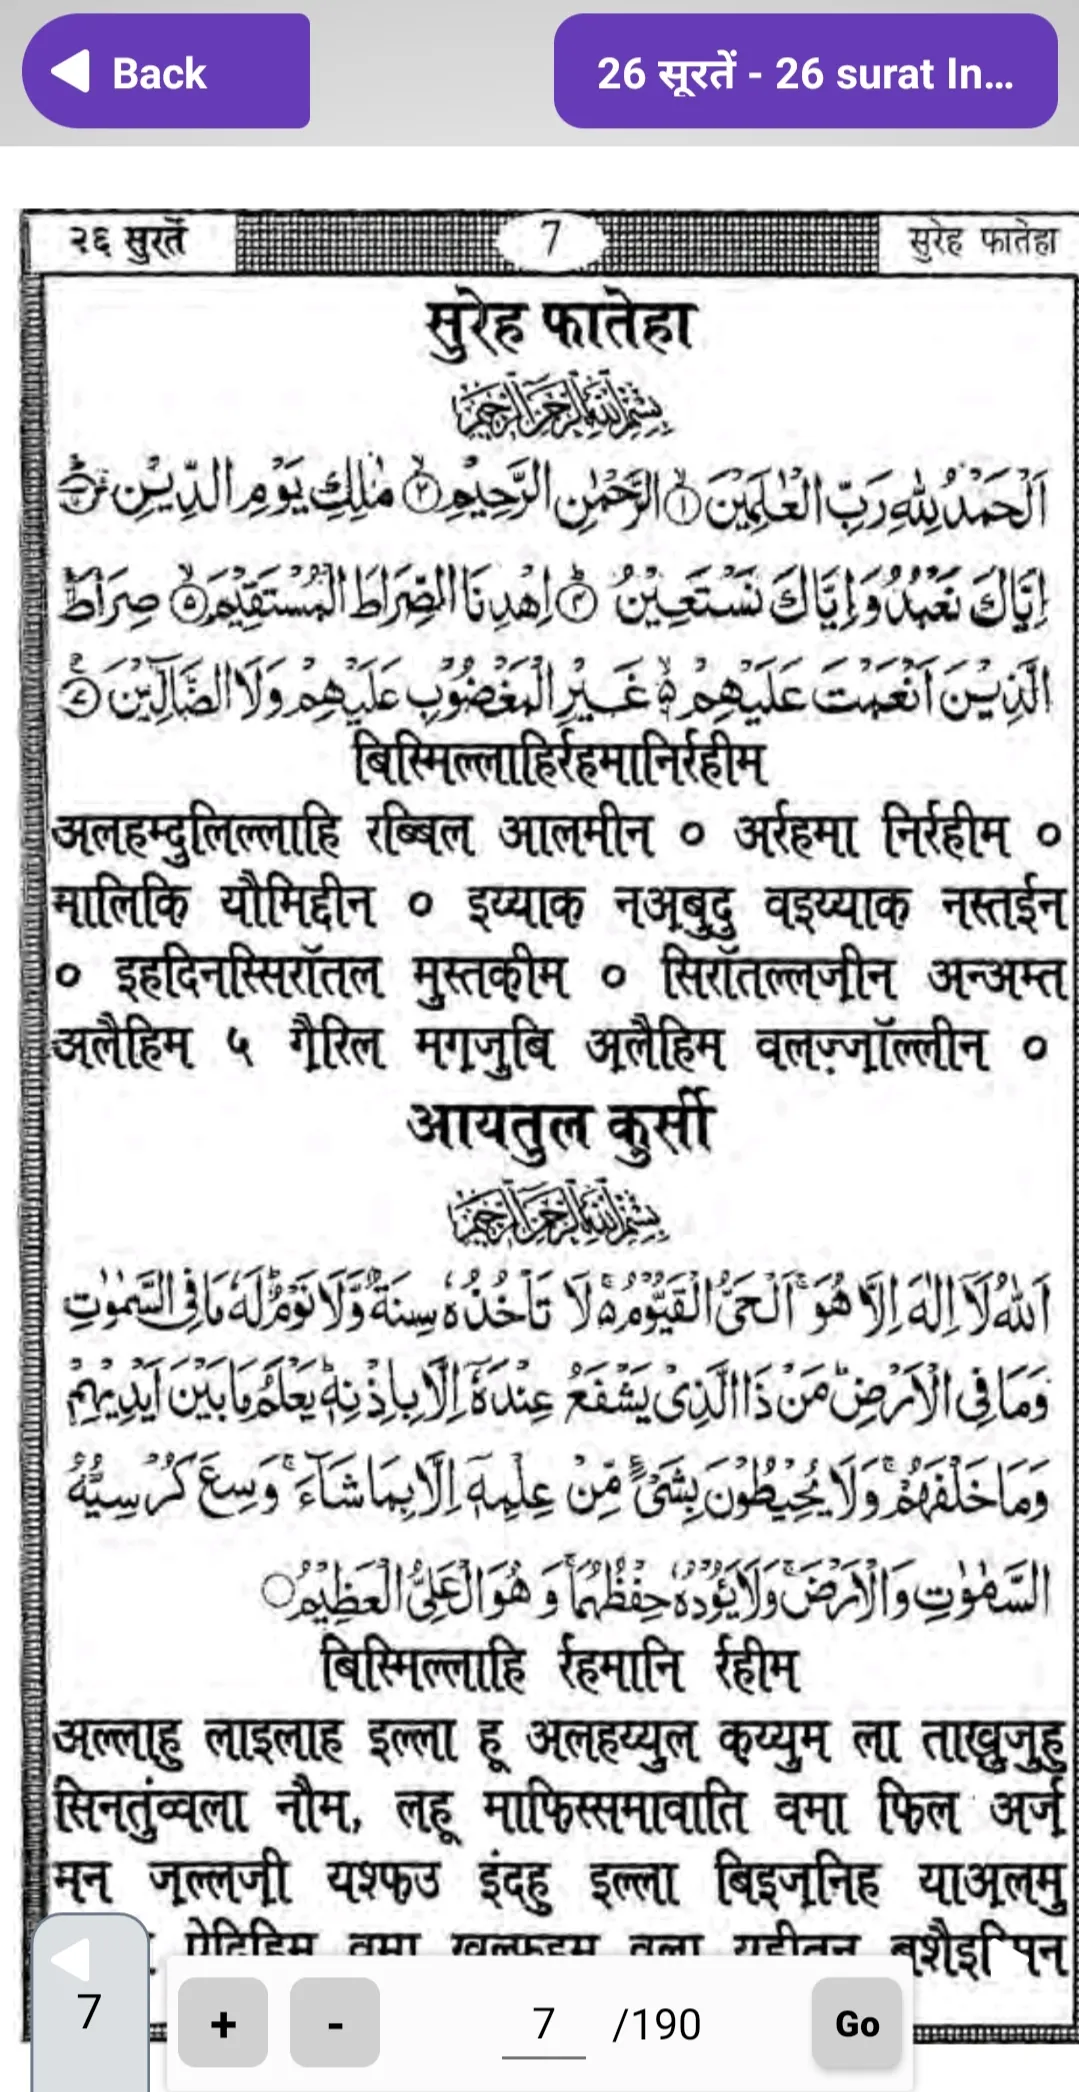 Back
26 सूरतें - 26 surat In...
२६ सुरतें
7
सुरेह फातेहा
सुरेह फातेहा
بِسْمِ اللهِ الرَّحْمٰنِ الرَّحِيْمِ
اَلْحَمْدُ لِلّٰهِ رَبِّ الْعٰلَمِيْنَ ۝١ الرَّحْمٰنِ الرَّحِيْمِ ۝٢ مٰلِكِ يَوْمِ الدِّيْنِ ۝٣
اِيَّاكَ نَعْبُدُ وَاِيَّاكَ نَسْتَعِيْنُ ۝٤ اِهْدِنَا الصِّرَاطَ الْمُسْتَقِيْمَ ۝٥ صِرَاطَ
الَّذِيْنَ اَنْعَمْتَ عَلَيْهِمْ غَيْرِ الْمَغْضُوْبِ عَلَيْهِمْ وَلَا الضَّآلِّيْنَ
बिस्मिल्लाहिर्रहमानिर्रहीम
अलहम्दुलिल्लाहि रब्बिल आलमीन ० अर्रहमा निर्रहीम ०
मालिकि यौमिद्दीन ० इय्याक नअ़बुदु वइय्याक नस्तईन
० इहदिनस्सिरॉतल मुस्तक़ीम ० सिरॉतल्लज़ीन अन्अम्त
अलैहिम ५ ग़ैरिल मग़जुबि अ़लैहिम वलज़्ज़ॉल्लीन ०
आयतुल कुर्सी
بِسْمِ اللهِ الرَّحْمٰنِ الرَّحِيْمِ
اَللّٰهُ لَآ اِلٰهَ اِلَّا هُوَ ۚ اَلْحَىُّ الْقَيُّوْمُ ۚ لَا تَاْخُذُهٗ سِنَةٌ وَّلَا نَوْمٌ ؕ لَهٗ مَا فِى السَّمٰوٰتِ
وَمَا فِى الْاَرْضِ ؕ مَنْ ذَا الَّذِىْ يَشْفَعُ عِنْدَهٗٓ اِلَّا بِاِذْنِهٖ ؕ يَعْلَمُ مَا بَيْنَ اَيْدِيْهِمْ
وَمَا خَلْفَهُمْ ۚ وَلَا يُحِيْطُوْنَ بِشَىْءٍ مِّنْ عِلْمِهٖٓ اِلَّا بِمَا شَآءَ ۚ وَسِعَ كُرْسِيُّهُ
السَّمٰوٰتِ وَالْاَرْضَ ۚ وَلَا يَئُوْدُهٗ حِفْظُهُمَا ۚ وَهُوَ الْعَلِىُّ الْعَظِيْمُ ۝
बिस्मिल्लाहि र्रहमानि र्रहीम
अल्लाहु लाइलाह इल्ला हू अलहय्युल क़य्युम ला ताख़ुजुहु
सिनतुंव्वला नौम, लहू माफिस्समावाति वमा फिल अर्ज़
मन ज़ल्लज़ी यश्फ़उ इंदहु इल्ला बिइज़निह याअ़लमु
ऐदिहिम वमा ख़ल्फहुम वला
7
+
-
7
/190
Go